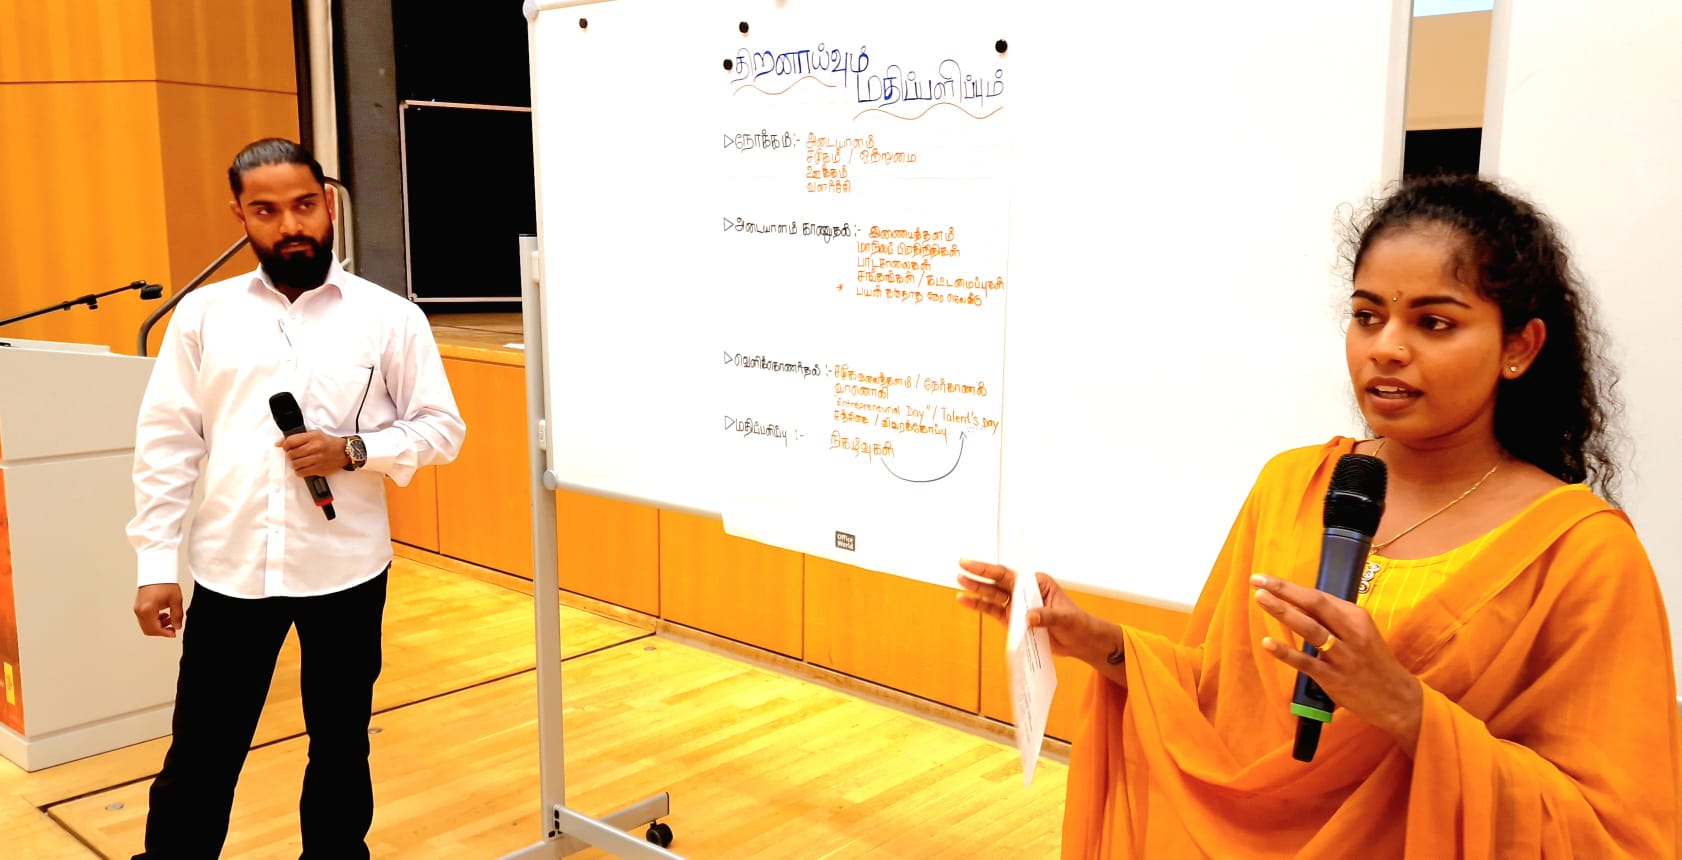 திறனாய்வும்
மதிப்பளிப்பும்
நோக்கம் :- அடையாளம்
சமூகம் / ஒற்றுமை
ஊக்கம்
வளர்ச்சி
அடையாளம் காணுதல் :- இணையத்தளம்
மாநிலப் பிரதிநிதிகள்
பாடசாலைகள்
சங்கங்கள் / கட்டமைப்புகள்
வெளிக்கொணர்தல் :- சமூகவலைத்தளம் / நேர்காணல்
வானொலி
"Entrepreneurial Day" / Talent's Day
சஞ்சிகை / விவரக்கோப்பு
மதிப்பளிப்பு :- நிகழ்வுகள்
Office
World